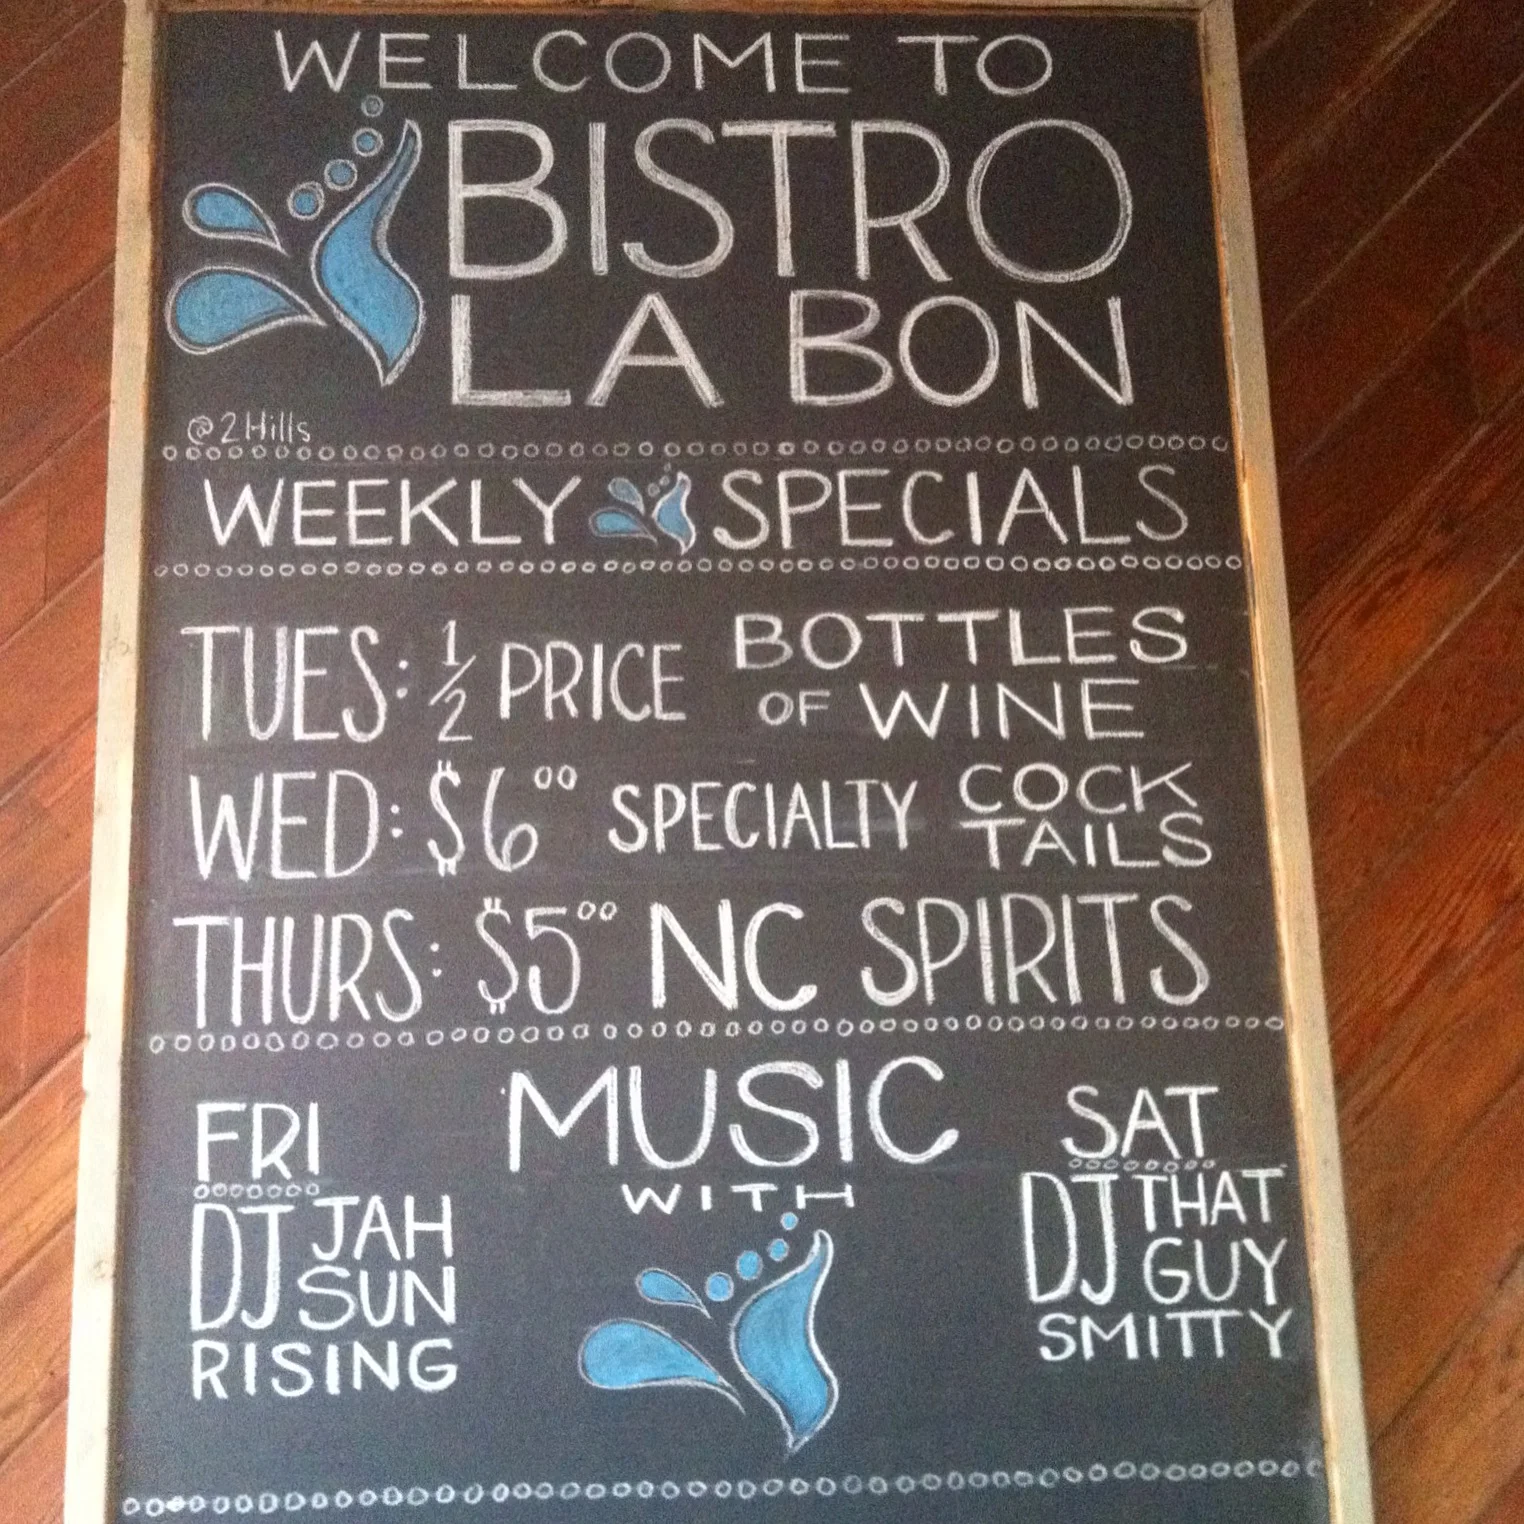 WELCOME TO
BISTRO
LA BON
@2Hills
WEEKLY SPECIALS
TUES: 1/2 PRICE BOTTLES OF WINE
WED: $6.00 SPECIALTY COCK TAILS
THURS: $5.00 NC SPIRITS
MUSIC
WITH
FRI
DJ JAH
SUN
RISING
SAT
DJ THAT
GUY
SMITTY